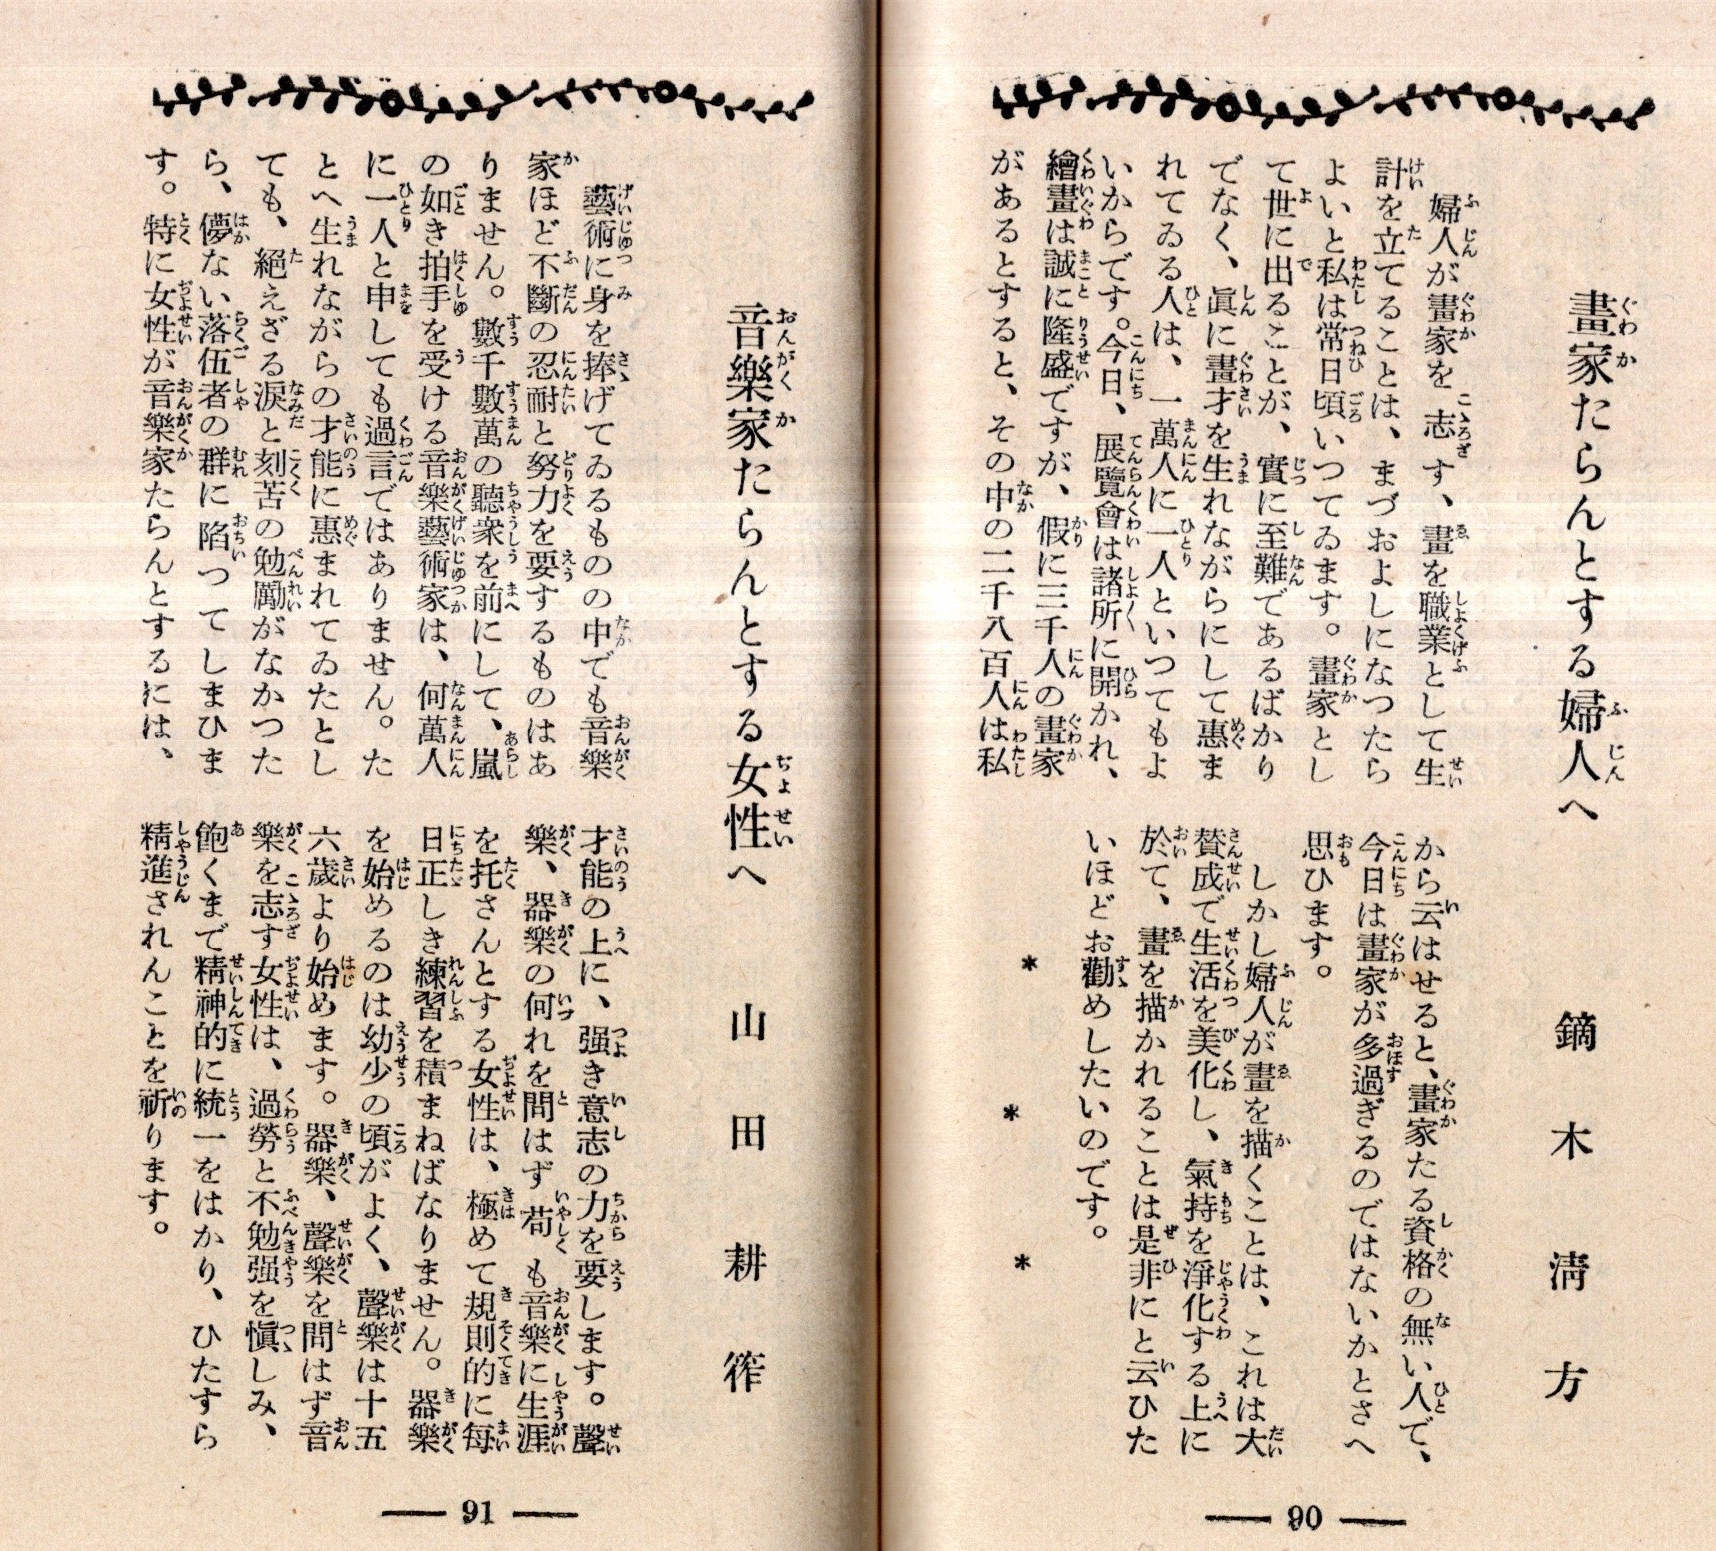 畫家たらんとする婦人へ
鏑木淸方
婦人が畫家を志す、畫を職業として生
計を立てることは、まづおよしになつたら
よいと私は常日頃いつてゐます。畫家とし
て世に出ることが、實に至難であるばかり
でなく、眞に畫才を生れながらにして惠ま
れてゐる人は、一萬人に一人といつてもよ
いからです。今日、展覽會は諸所に開かれ、
繪畫は誠に隆盛ですが、假に三千人の畫家
があるとすると、その中の二千八百人は私
から云はせると、畫家たる資格の無い人で、
今日は畫家が多過ぎるのではないかとさへ
思ひます。
しかし婦人が畫を描くことは、これは大
賛成で生活を美化し、氣持を淨化する上に
於て、畫を描かれることは是非にと云ひた
いほどお勸めしたいのです。
＊　＊　＊
— 90 —
音樂家たらんとする女性へ
山田耕筰
藝術に身を捧げてゐるものの中でも音樂
家ほど不斷の忍耐と努力を要するものはあ
りません。數千數萬の聽衆を前にして、嵐
の如き拍手を受ける音樂藝術家は、何萬人
に一人と申しても過言ではありません。た
とへ生れながらの才能に惠まれてゐたとし
ても、絕えざる淚と刻苦の勉勵がなかつた
ら、儚ない落伍者の群に陷つてしまひま
す。特に女性が音樂家たらんとするには、
才能の上に、强き意志の力を要します。聲
樂、器樂の何れを問はず苟も音樂に生涯
を托さんとする女性は、極めて規則的に每
日正しき練習を積まねばなりません。器樂
を始めるのは幼少の頃がよく、聲樂は十五
六歲より始めます。器樂、聲樂を問はず音
樂を志す女性は、過勞と不勉强を愼しみ、
飽くまで精神的に統一をはかり、ひたすら
精進されんことを祈ります。
— 91 —